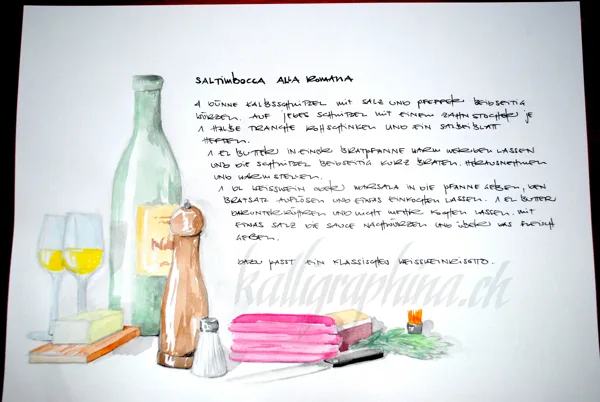 SALTIMBOCCA ALLA ROMANA
4 DÜNNE KALBSSCHNITZEL MIT SALZ UND PFEFFER BEIDSEITIG
WÜRZEN. AUF JEDES SCHNITZEL MIT EINEM ZAHNSTOCHER JE
1 HALBE TRANCHE ROHSCHINKEN UND EIN SALBEIBLATT
HEFTEN.
1 EL BUTTER IN EINER BRATPFANNE WARM WERDEN LASSEN
UND DIE SCHNITZEL BEIDSEITIG KURZ BRATEN. HERAUSNEHMEN
UND WARM STELLEN.
1 DL WEISSWEIN ODER MARSALA IN DIE PFANNE GEBEN, DEN
BRATSATZ AUFLÖSEN UND ETWAS EINKOCHEN LASSEN. 1 EL BUTTER
DARUNTERRÜHREN UND NICHT MEHR KOCHEN LASSEN. MIT
ETWAS SALZ DIE SAUCE NACHWÜRZEN UND ÜBER DAS FLEISCH
GEBEN.
DAZU PASST EIN KLASSISCHES WEISSWEINRISOTTO.
kalligraphina.ch